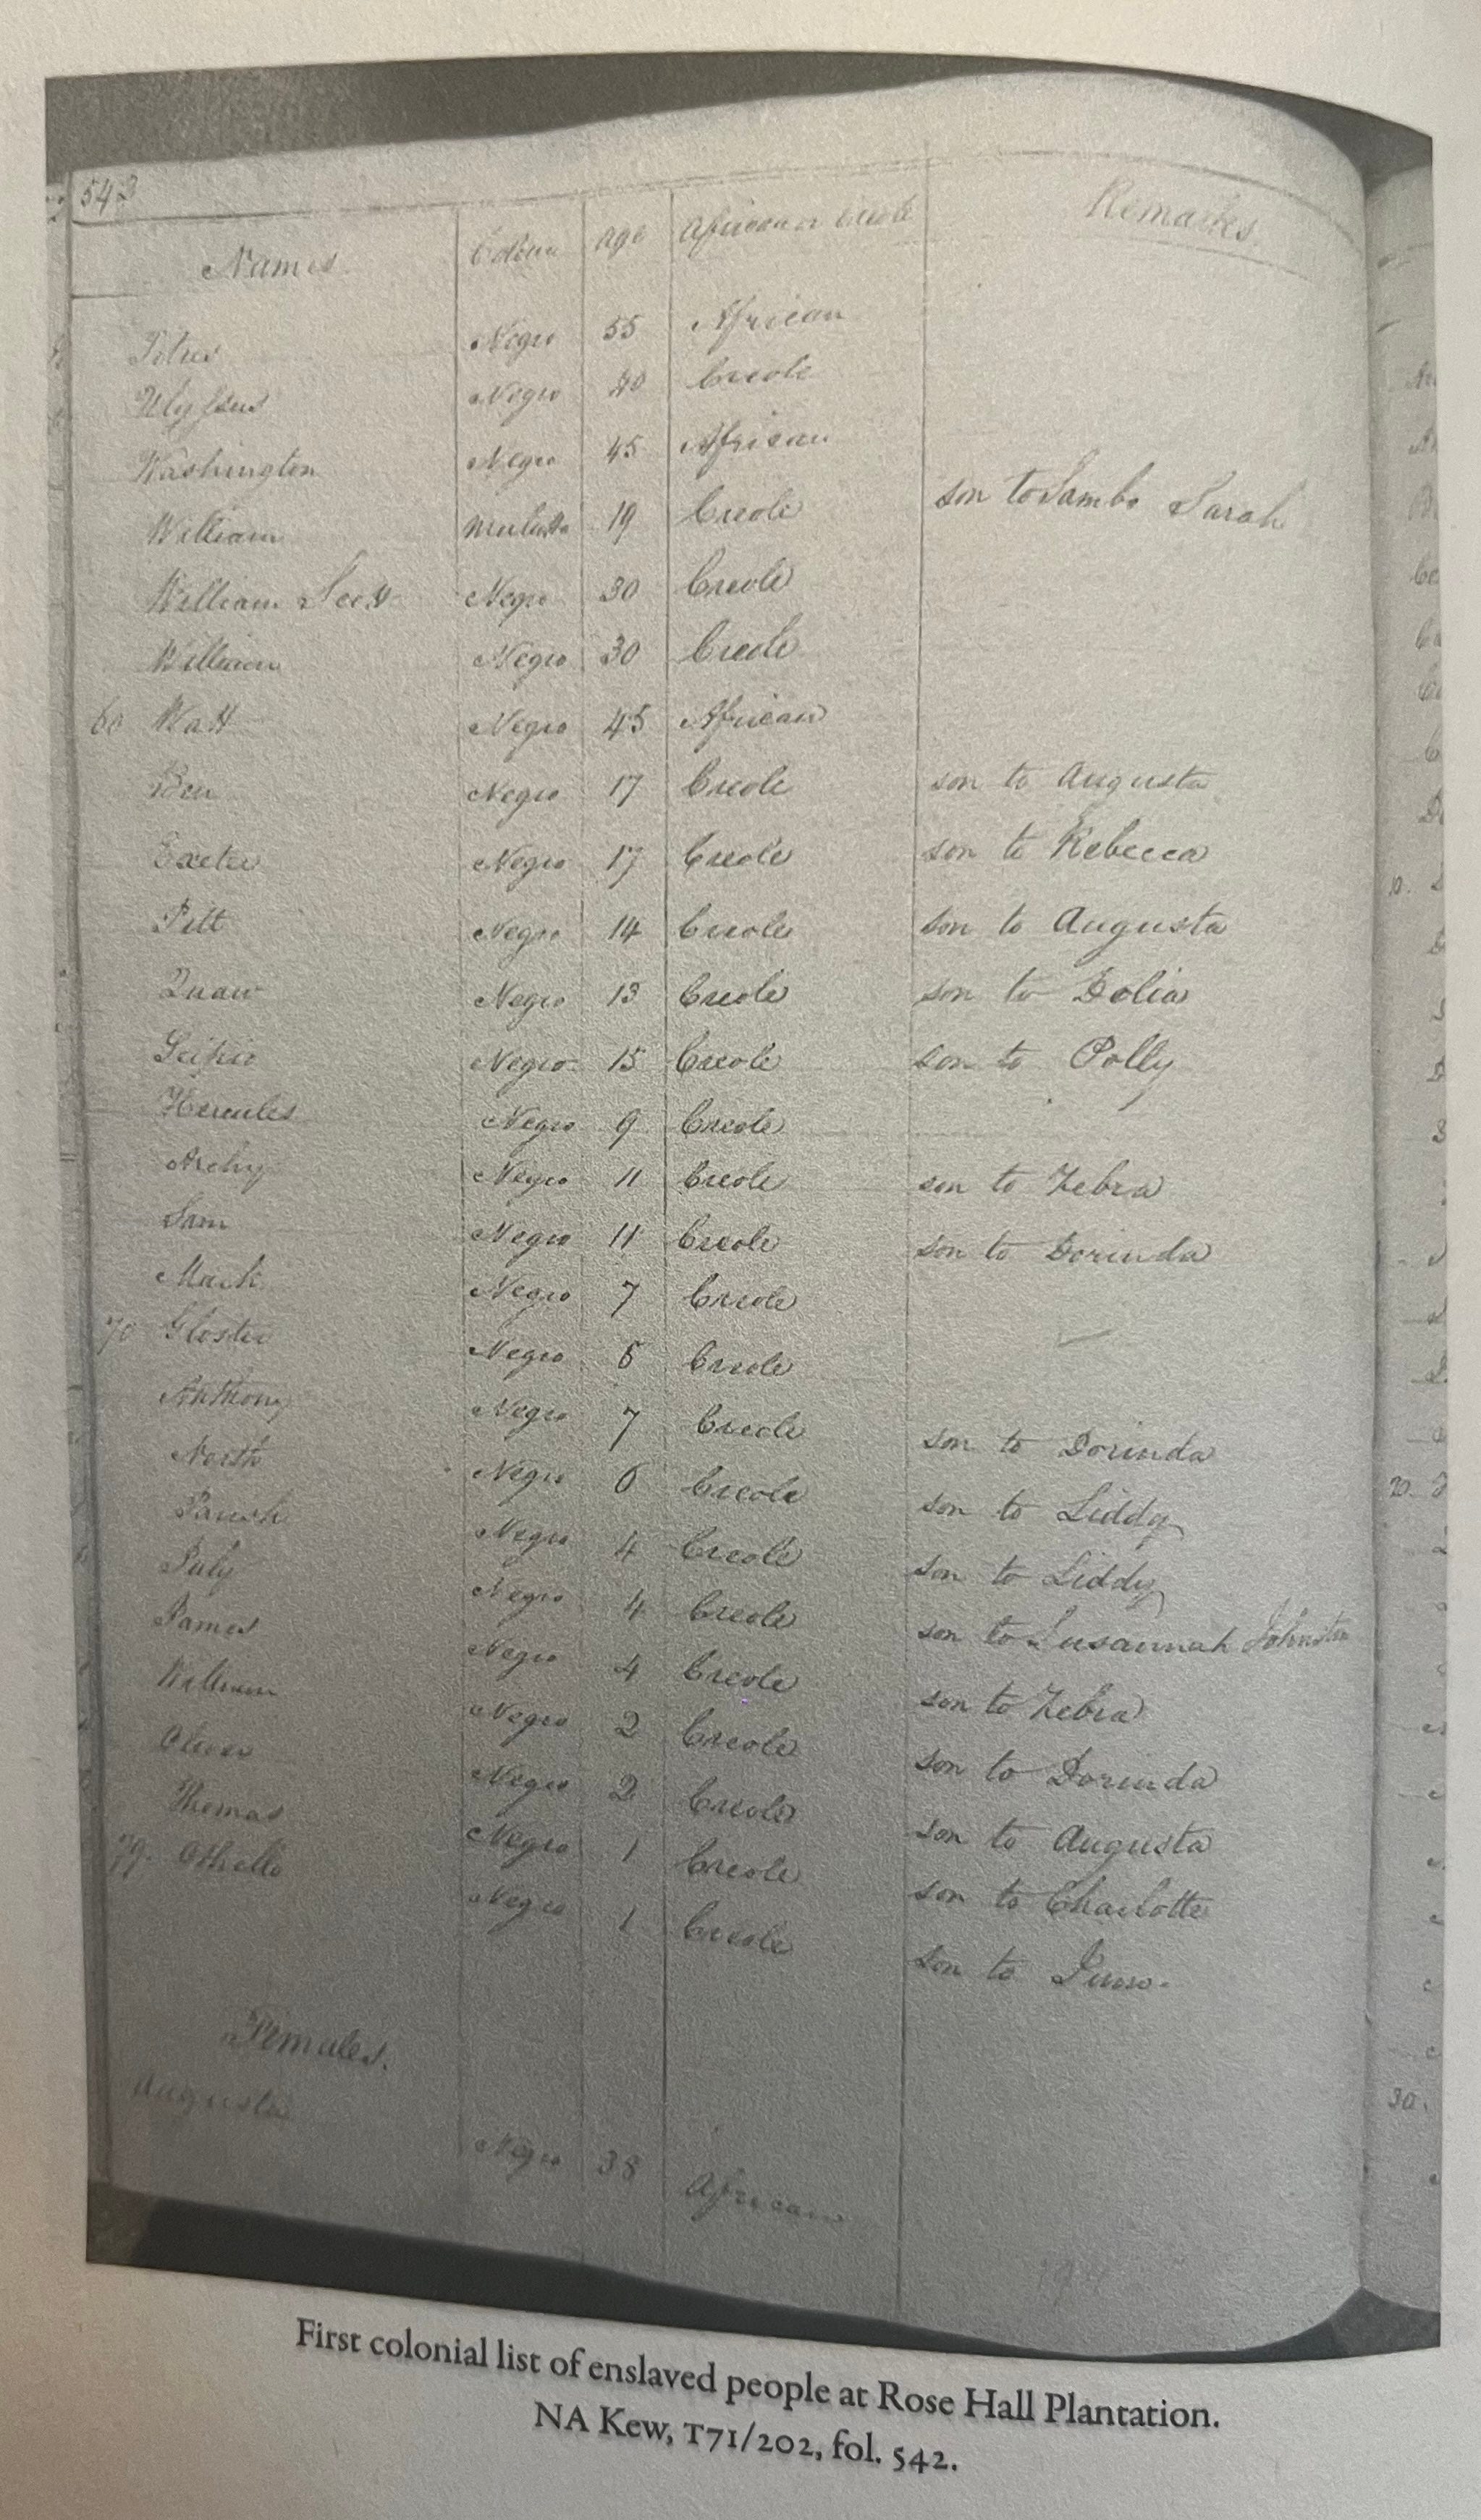 542
Names Colour Age African or Creole Remarks
Petrus Negro 55 African
Ulyssus Negro 40 Creole
Washington Negro 45 African
William Mulatto 19 Creole son to Sambo Sarah
William Scott Negro 30 Creole
William Negro 30 Creole
60 Watt Negro 45 African
Ben Negro 17 Creole son to Augusta
Exeter Negro 17 Creole son to Rebecca
Pitt Negro 14 Creole son to Augusta
Quaw Negro 13 Creole son to Delia
Scipio Negro 15 Creole son to Polly
Hercules Negro 9 Creole
Archy Negro 11 Creole son to Zebra
Sam Negro 11 Creole son to Dorinda
Mark Negro 7 Creole
70 Gloster Negro Creole
Anthony Negro 7 Creole son to Dorinda
North Negro 6 Creole son to Liddy
Parish Negro 4 Creole son to Liddy
July Negro 4 Creole son to Susannah Johnston
James Negro 4 Creole son to Zebra
William Negro 2 Creole son to Dorinda
Oliver Negro 2 Creole son to Augusta
Thomas Negro 1 Creole son to Charlotte
79. Othello Negro 1 Creole son to Juno.
Females.
Augusta Negro 38 African
First colonial list of enslaved people at Rose Hall Plantation.
NA Kew, T71/202, fol. 542.